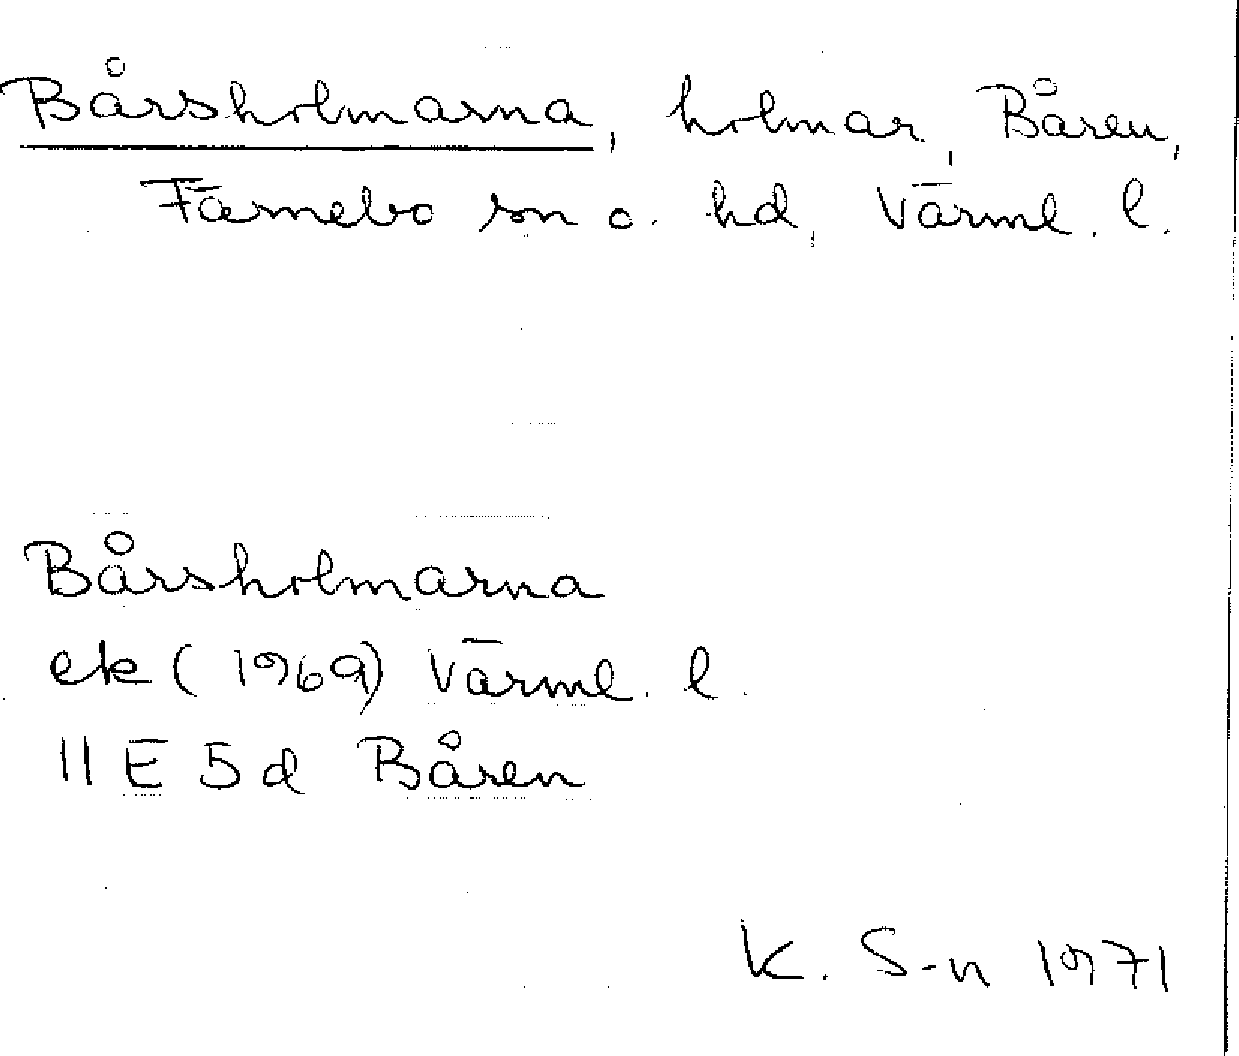 Bårsholmarna, holmar, Båren,
Färnebo sn o. hd, Värml. l.
Bårsholmarna
ek (1969) Värml. l.
11 E 5 d Båren
K. S-n 1971